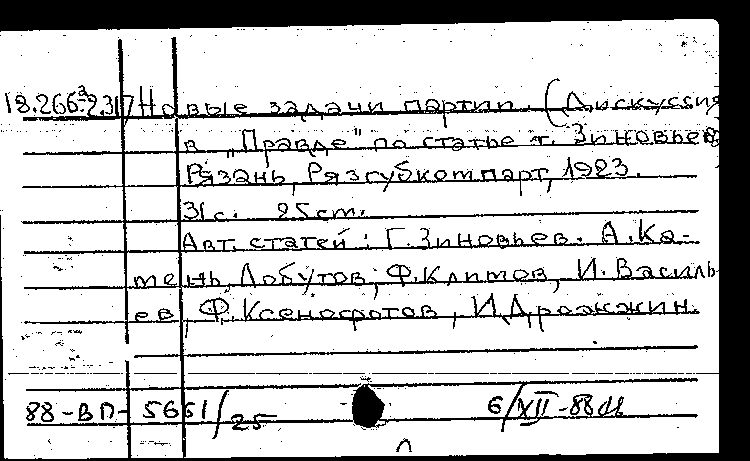 18.266.2.317 Новые задачи партии. (Дискуссия
в „Правде" по статье т. Зиновьев
Рязань, Рязгубкомпарт, 1923.
31с. 25см.
Авт. статей: Г.Зиновьев. А.Ка-
мень, Лобутов, Ф.Климов, И.Василь
ев, Ф.Ксенофотов, И.Дрожжин.
88-ВП-5651/25 6/XII-88